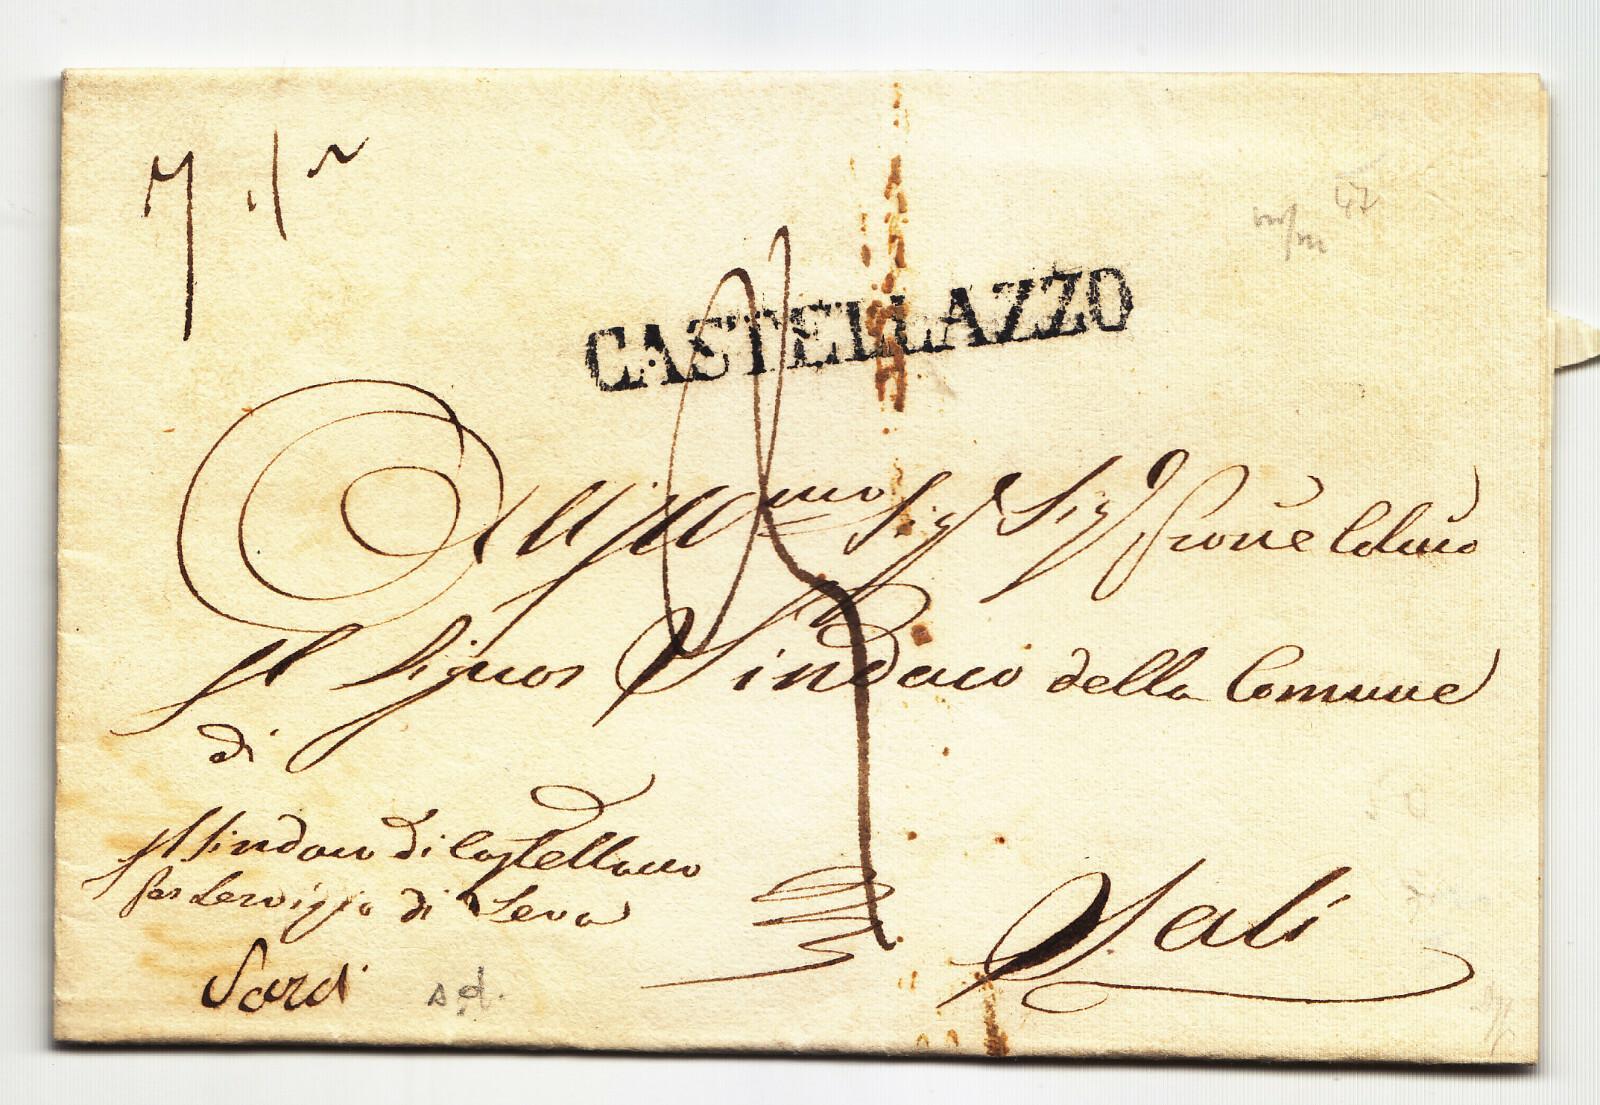 47
CASTELLAZZO
All' Ill.mo Sig.r Sig.r
Il Signor Sindaco della Comune
di
Il Sindaco di Castellazzo
per Servizio di Leva
Sali
Sardi